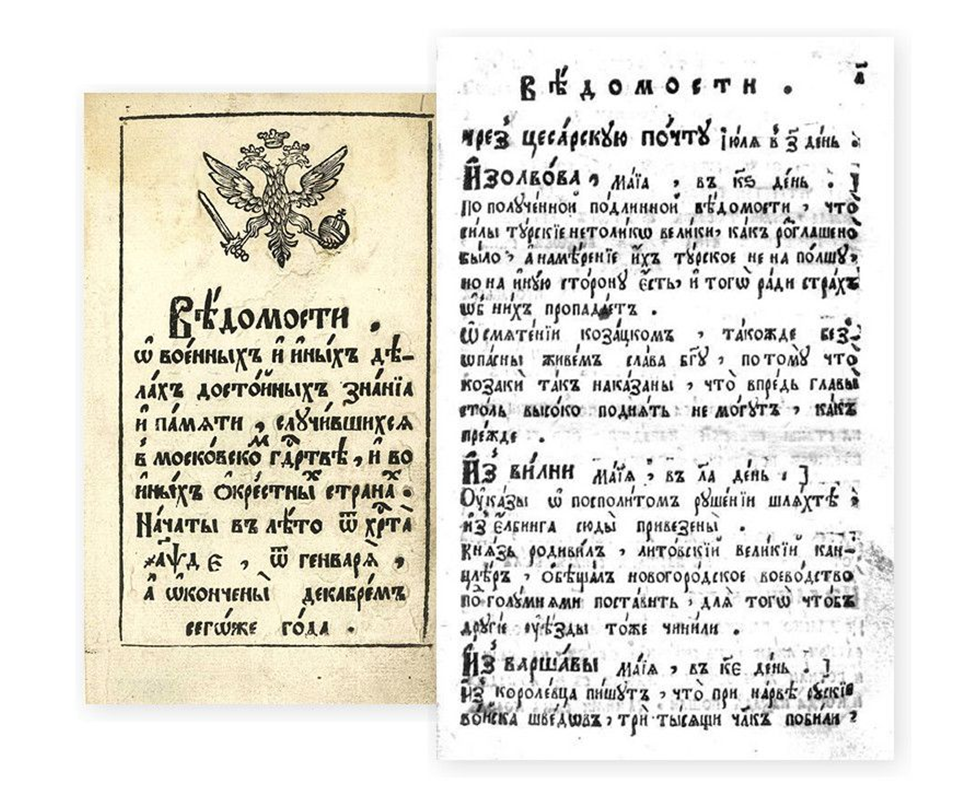 Вѣ́домости .
ѡ҆ вое́нныхъ и҆ и҆ны́хъ дѣ-
ла́хъ досто́йныхъ зна́нїѧ
и҆ па́мѧти , случи́вшихсѧ
в̾ моско́вскоⷨ гдⷭ҇ртвѣ , и҆ во
и҆ны́хъ ѻ҆кре́стныⷯ страна́ⷯ .
На́чаты въ лѣ́то ѿ хрⷭ҇та̀
҂аѱд є , ѿ генварѧ̀ ,
а҆ ѡ҆кончены̀ декабре́мъ
сегѡ́же го́да .
Вѣ́домости .
чрез̾ цеса́рскую по́чту і҆ю́лѧ в̾ з҃ де́нь :
Из̾ольво́ва , ма́їа , въ к҃ѕ де́нь .
По полу́ченной по́длинной вѣ́домости , что
си́лы ту́рскїе нетоликѡ вели́ки , ка́къ роз̾глашено
бы́ло , а҆ намѣ́ренїе и҆́хъ ту́рское не на по́лшу ,
но на и҆ну́ю сто́рону є҆́сть , и҆ тогѡ̀ ра́ди стра́хъ
ѡб̾ ни́хъ пропада́етъ .
Ѡ смѧте́нїи коза́цкомъ , та́кожде без̾-
ѡпа́сны живе́мъ сла́ва бг҃у , по тому̀ что
козакѝ та́къ нака́заны , что̀ впре́дь главы̀
сто́ль высо́ко поднѧ́ть не мо́гутъ , ка́къ
пре́жде .
Из̾ ви́лни ма́їѧ , въ л҃а де́нь .
Оука́зы ѡ҆ посполи́томъ руше́нїи шлѧхтѣ̀ ,
из̾ є҆лбинга сюды̀ привезены̀ .
Кнѧ́зь родиви́лъ , лито́вскїй вели́кїй ка́н-
цлѣръ , ѻ҆бѣща́лъ новогоро́дское воево́дство
по голу́мнѧми поста́вить , для́ тогѡ̀ что́бъ
другїе оуѣ́зды то́же чини́ли .
Из̾ варша́вы ма́їѧ , въ к҃є де́нь .
Из̾ короле́вца пи́шутъ , что̀ при на́рвѣ ру́скїе
во́йска шве́дѡвъ , трѝ ты́сѧщи чл҃къ поби́ли ,